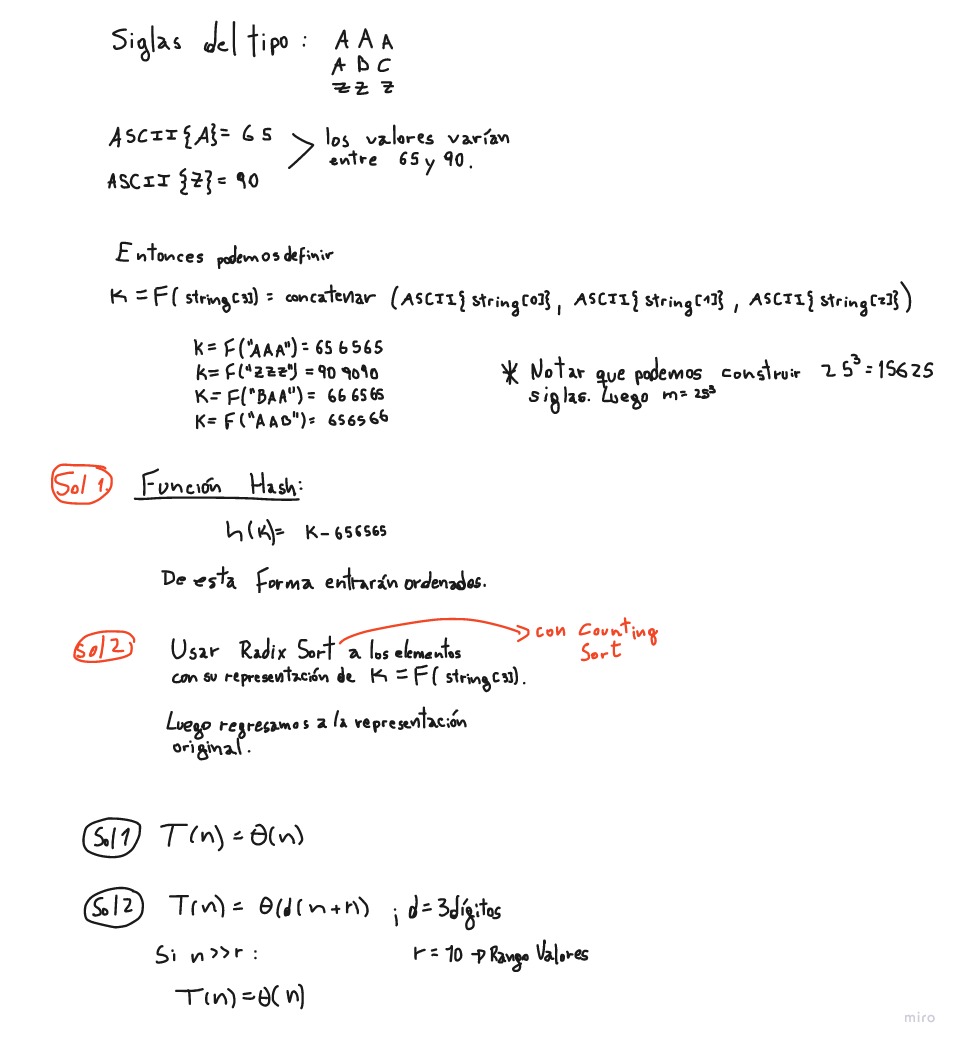 Siglas del tipo: A A A
A B C
Z Z Z
ASCII{A}= 65
los valores varían
entre 65 y 90.
ASCII {Z}= 90
Entonces podemos definir
K = F( string[3]) = concatenar (ASCII{ string[0]}, ASCII{ string[1]} , ASCII{ string[2]})
K= F("AAA")= 656565
K= F("ZZZ") = 909090
K= F("BAA")= 666565
K= F("AAB")= 656566
* Notar que podemos construir 25³ = 15625
siglas. Luego m= 25³
Sol 1. Función Hash:
h(K)= K- 656565
De esta Forma entrarán ordenados.
Sol 2) Usar Radix Sort a los elementos
con su representación de K = F( string[3]).
con Counting
Sort
Luego regresamos a la representación
original.
Sol 1 T(n) = Θ(n)
Sol 2 T(n) = Θ(d(n+r)) ; d=3 dígitos
Si n>>r : r = 10 → Rango Valores
T(n) = Θ(n)
miro